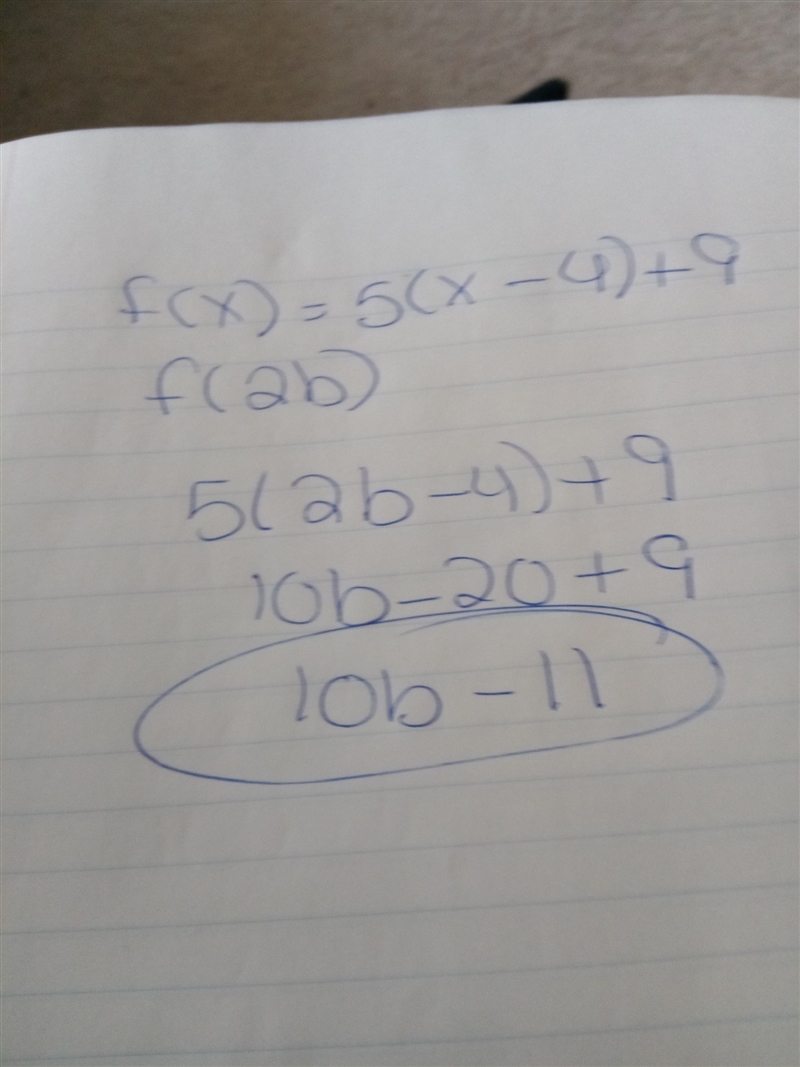 f(x) = 5(x - 4) + 9
f(2b)
5(2b - 4) + 9
10b - 20 + 9
10b - 11